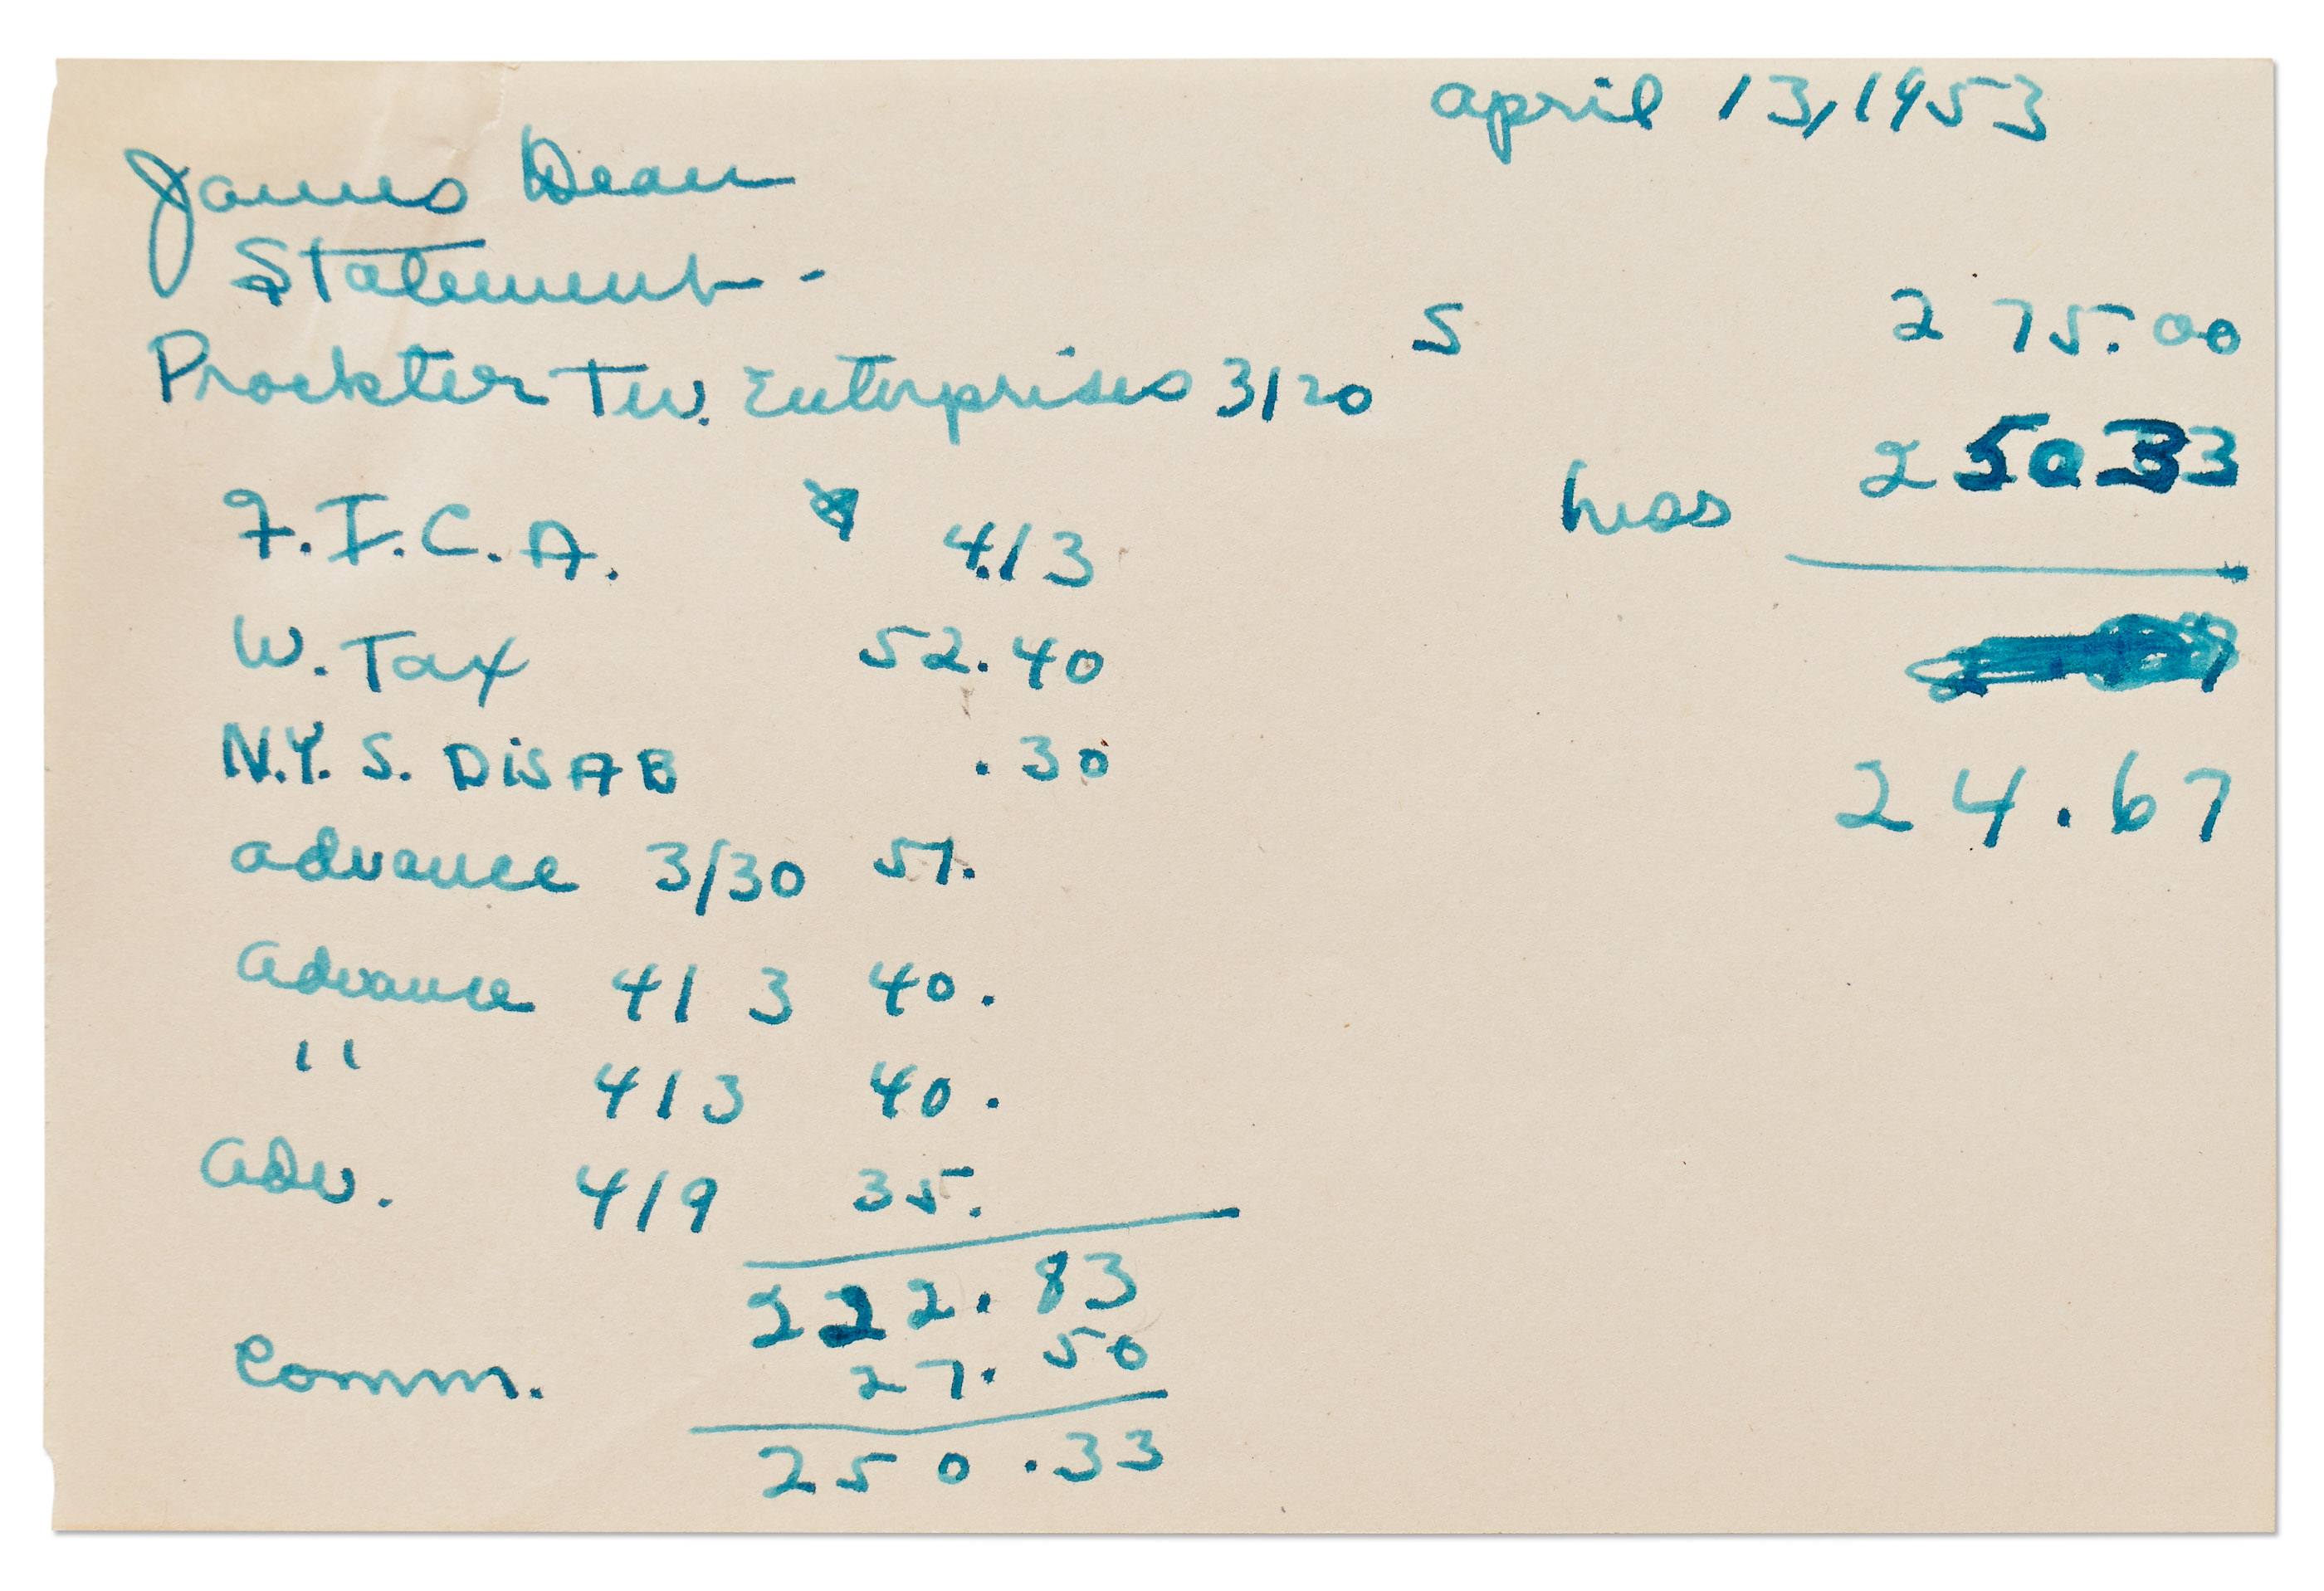 april 13, 1953
James Dean
Statement -
Prockter TV. Enterprises 3/20 S 275.00
less 250 33
F.I.C.A. 4.13
W. Tax 52.40
N.Y.S. DISAB .30
24.67
advance 3/30 51.
advance 4/3 40.
" 4/3 40.
adv. 4/9 35.
222.83
Comm. 27.50
250.33